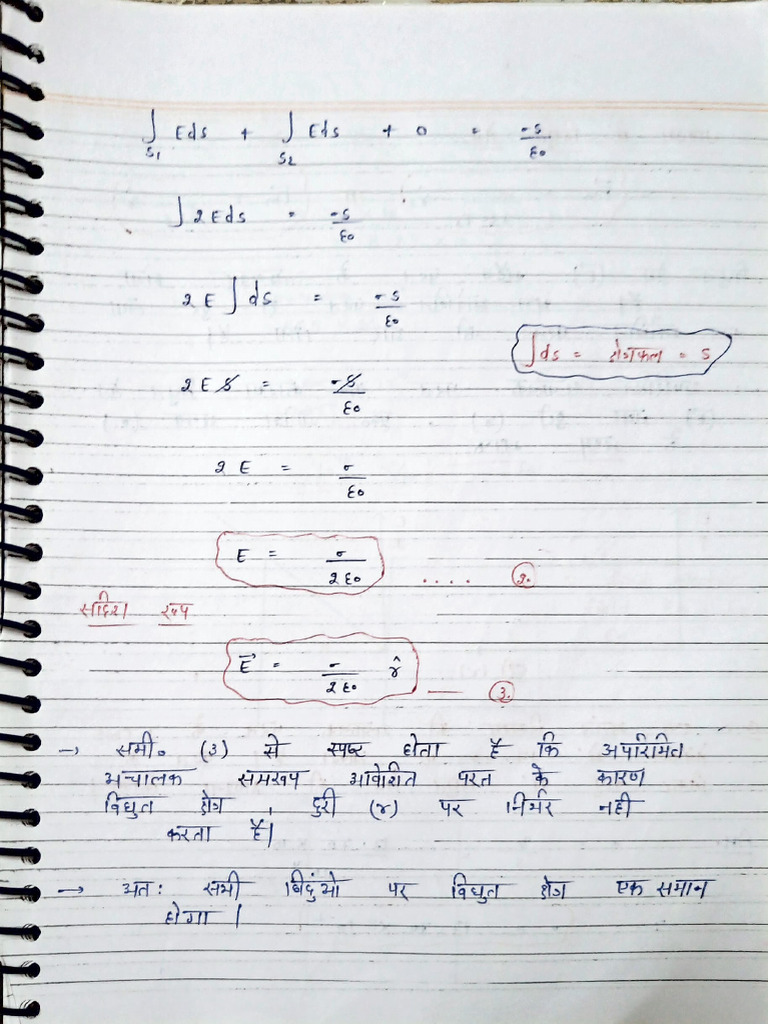 ∫_{S1} Eds + ∫_{S2} Eds + 0 = σs/ε0
∫ 2Eds = σs/ε0
2E ∫ ds = σs/ε0
∫ds = क्षेत्रफल = s
2Es = σs/ε0
2E = σ/ε0
E = σ/2ε0 .... ②.
सदिश रूप
E⃗ = σ/2ε0 r̂ — ③.
→ समी० (3) से स्पष्ट होता है कि अपरिमित
अचालक समरूप आवेशित परत के कारण
विधुत क्षेत्र , दुरी (r) पर निर्भर नही
करता है।
→ अतः सभी बिदुंओ पर विधुत क्षेत्र एक समान
होगा।